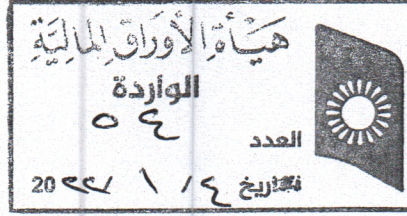 هَيْأَةُ الْأَوْرَاقِ الْمَالِيَّةِ
الواردة
العدد ٥٤
تاريخ ٤ / ١ / ٢٢ 20